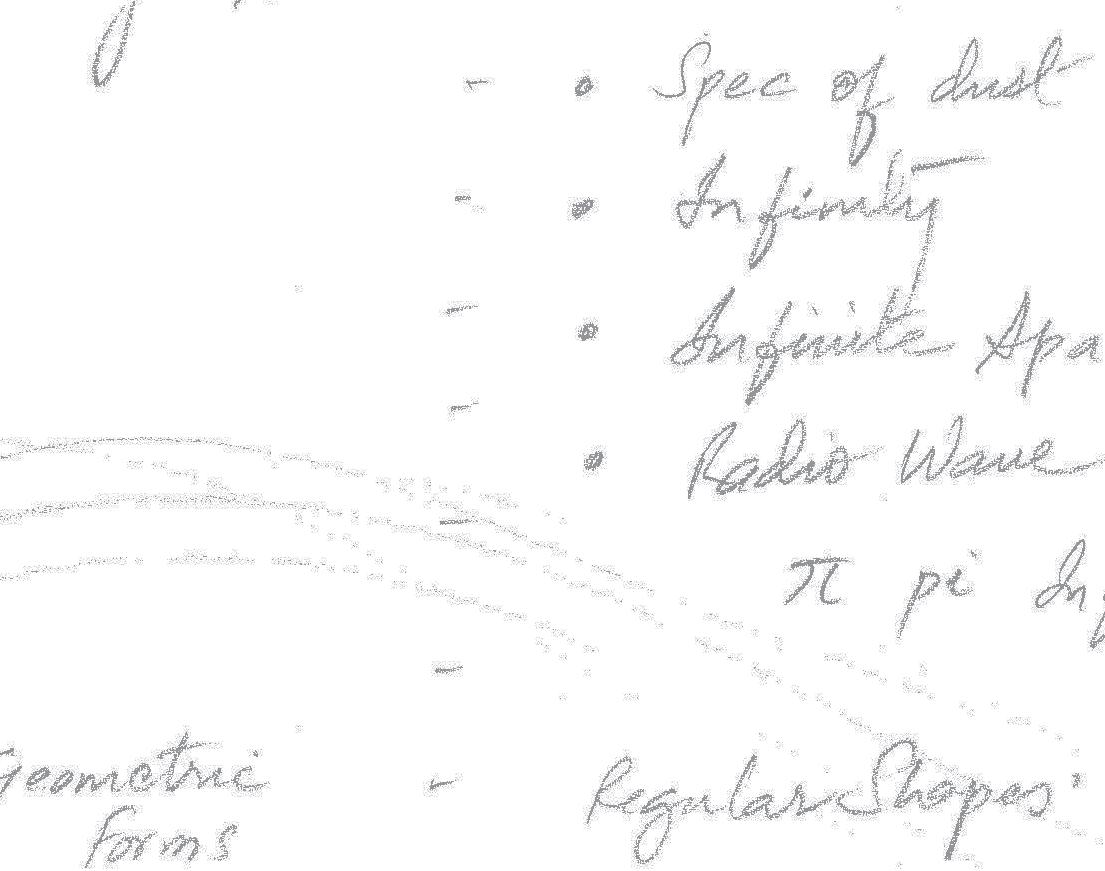 - • Spec of dust
- • Infinity
- • Infinite Spa
- • Radio Wave
-
π pi Inf
-
Geometric - Regular Shapes
forms